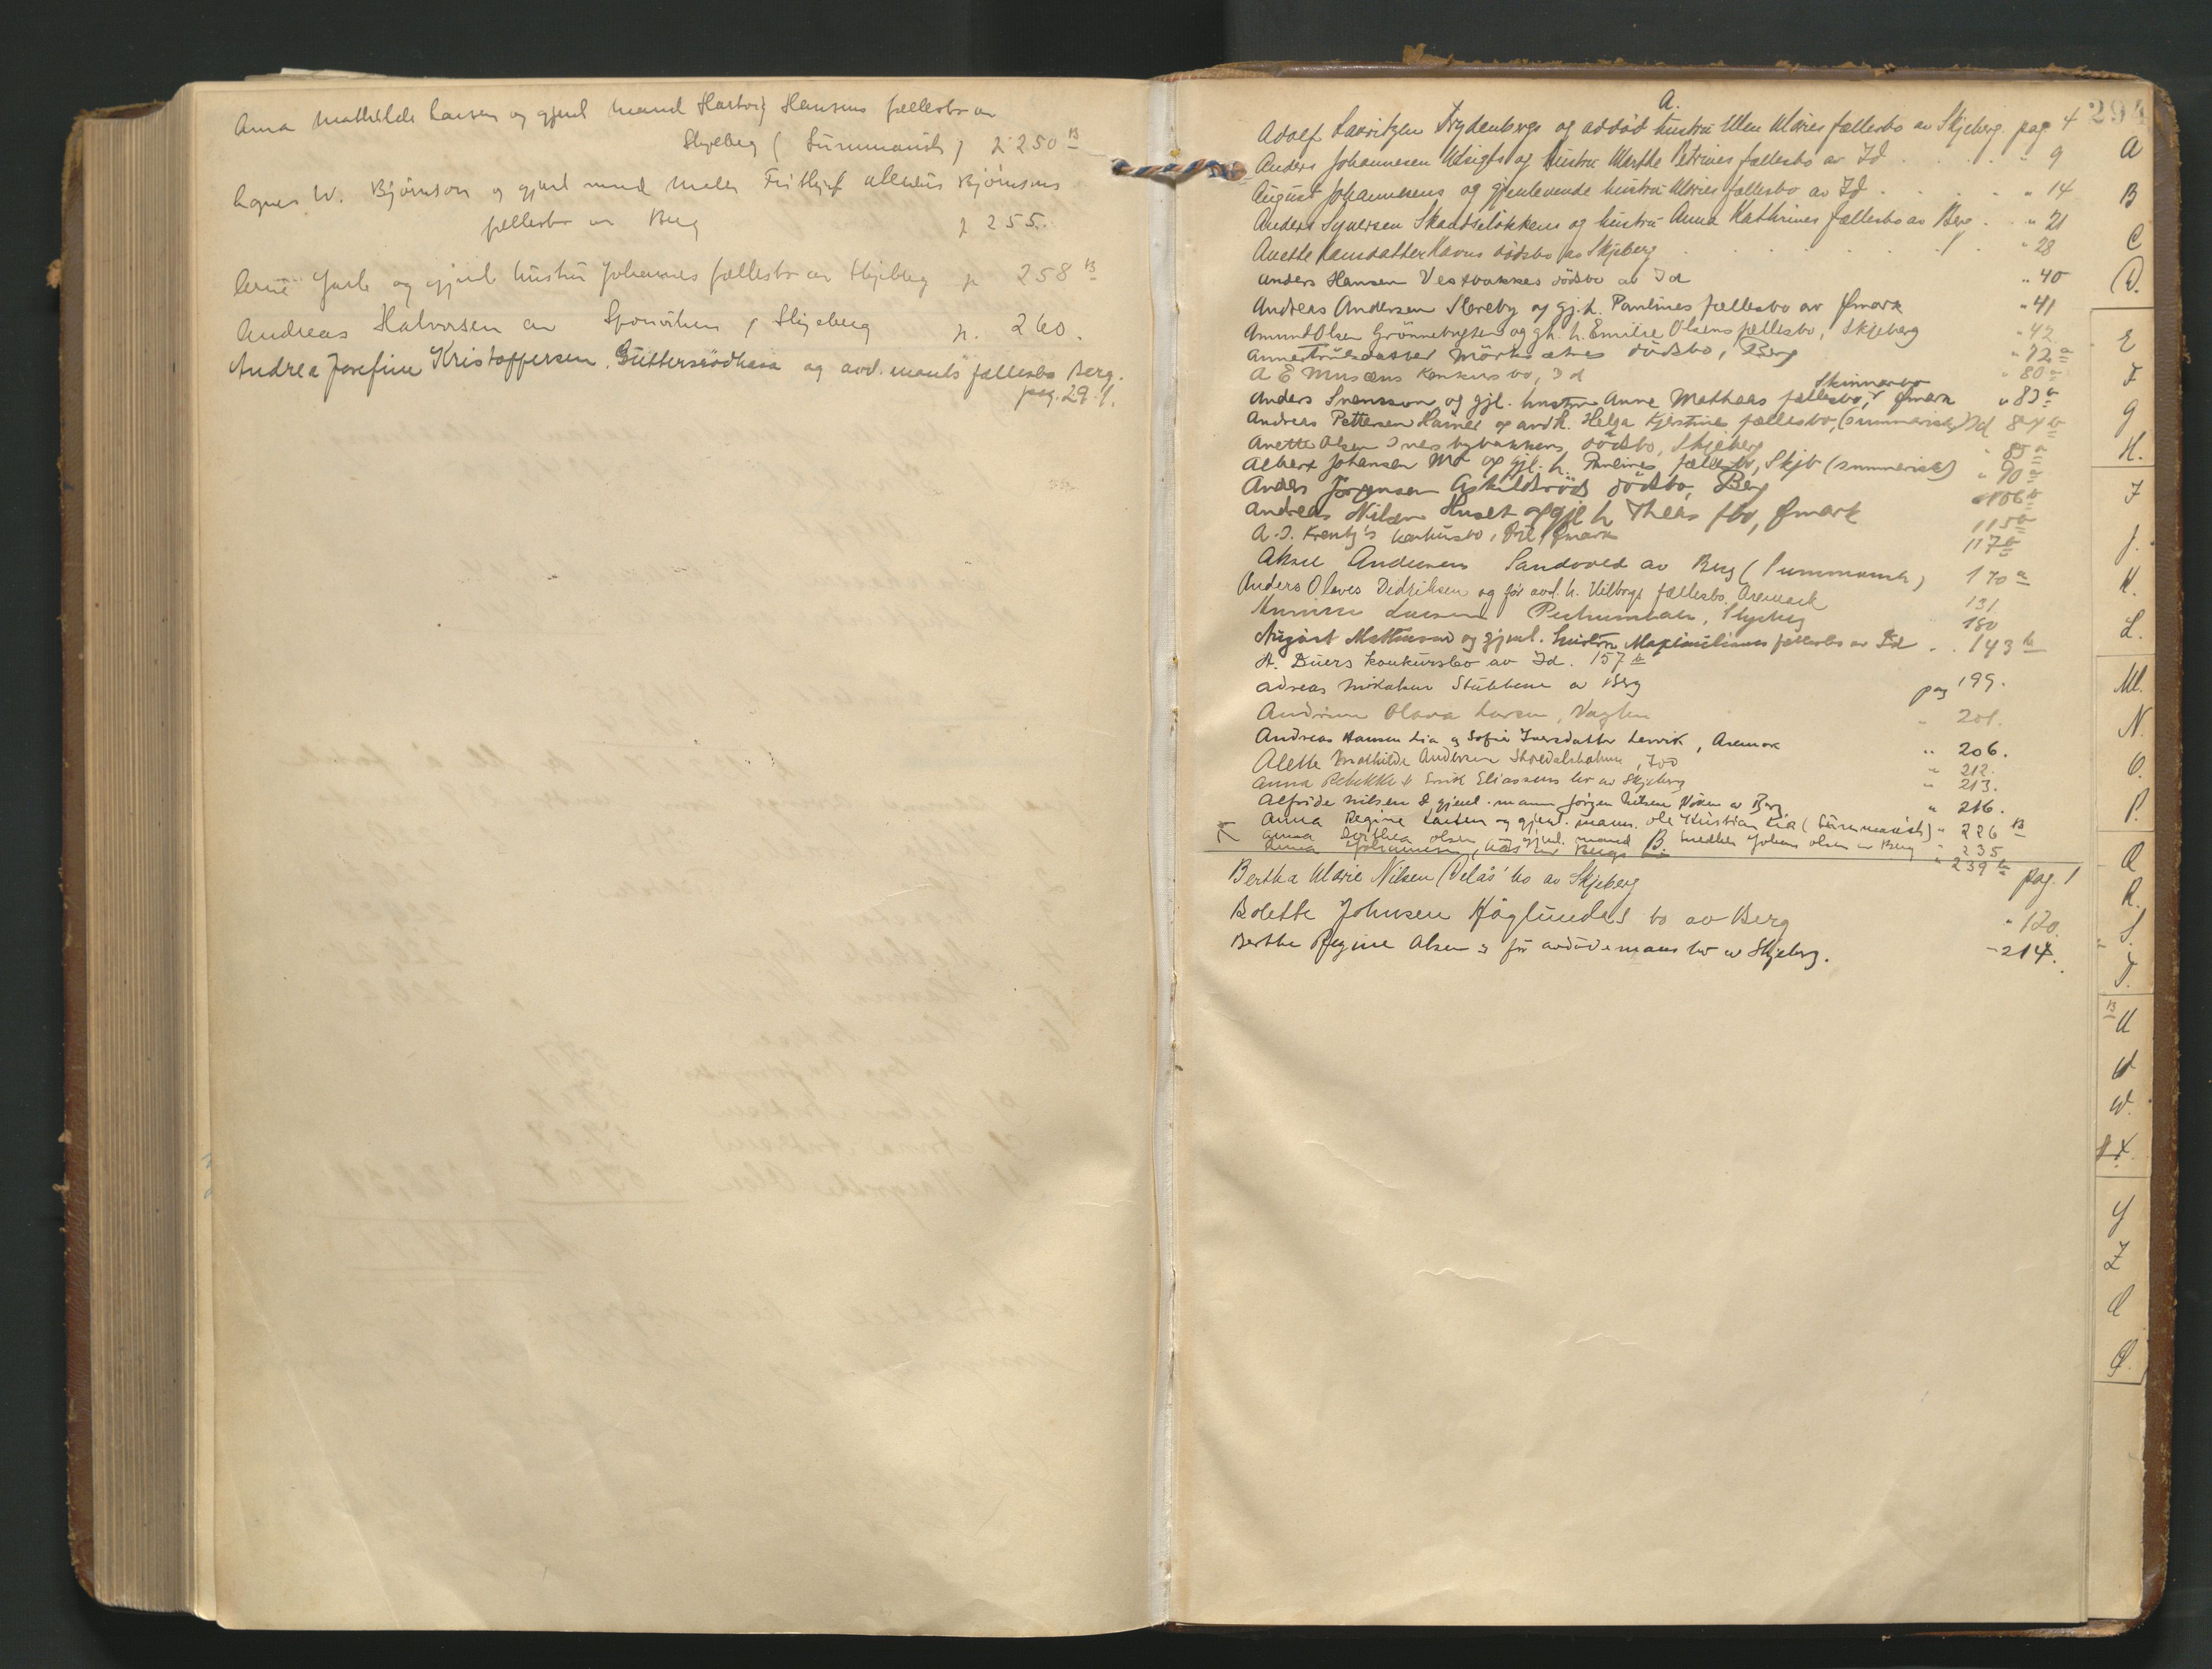 Anna Mathilde Larsen og gjenl mand Hartvig Hansens fællesbo av
Skjeberg (Summarisk) p 250 B
Agnes W. Bjørnson og gjenl mand Maler Frithjof Bjørnsons
fællesbo av Berg p 255.
og gjenl hustru Johannes fællesbo av Skjeberg p 258 B
Andreas Halvorsen av Sponviken, Skjeberg p. 260.
Andrea Josefine Kristoffersen, Gutterødhasa og avd. mands fællesbo Berg.
pag. 291.
A.
294
Adolf Lauritzen Frydenbergs og avdød hustru Ellen Maries fællesbo av Skjeberg. pag. 4
Anders Johannesen Udsigts og hustru Marthe Petrines fællesbo av Id . . . . " 9
August Johannesens og gjenlevende hustru Maries fællesbo av Id . . . . " 14
Anders Syversen Skaadseløkkens og hustru Anna Kathrines fællesbo av Berg . . " 21
Anette Hansdatter Havns dödsbo av Skjeberg . . . . . " 28
Anders Hansen Vestbakkes dödsbo av Id " 40
Andreas Andersen Horeby og gj. h. Paulines fællesbo av Ømark " 41
Amund Olsen Grönnebugten og gh. h. Emilie Olsens fællesbo, Skjeberg " 42
Anne Truelsdatter dödsbo, Berg " 72 a
A E Musæus Konkursbo, Id " 80 a
Skinnarbo
Anders Svensson og gjl. hustru Anne Matheas fællesbo, Ømark " 83 a
Andreas Pettersen og avd h. Helga Kjerstines fællesbo, (summarisk) Id 84 b
Anette Olsen dödsbo, Skjeberg " 85 a
Albert Johansen Mo og gjl. h. Paulines fællesbo, Skjb (summarisk) " 90 a
Anders Jörgensen Askildsröds dödsbo, Berg 106 b
Andreas Nilsen Huset og gjl h Theas fbo, Ømark 115 a
A. J. Konkursbo, Ømark 117 b
Aksel Andersen Sandvold av Berg (Summarisk) 170 a
Anders Olaves Didriksen og før avd. h. fællesbo, Aremark 131
Larsen, Skjeberg 180
August Mathisens og gjenl. hustru Maximilianes fællesbo av Id . . 143 b
A. Duers konkursbo av Id. 157 b
Stubbene av Berg pag 199.
Andrine Olava Larsen, " 201.
Andreas Hansen Lia og Sofie Iversdatter Lervik, Aremark " 206.
Alette Mathilde Andersen, Idd " 212.
Anna Rebekka & Emil Eliassens bo av Skjeberg " 213.
Alfride Nilsen & gjenl. mann Jörgen Nilsen av Berg " 216.
Anna Regine Larsen og gjenl. mann. Ole Kristian Lia (Summarisk) " 226 B
Anna Dorthea Olsen, gjenl. mand Snedker Johans Olsen av Berg " 235
Anna Johannesen, av Berg " 239 b
B.
Bertha Marie Nilsen Velås' bo av Skjeberg pag. 1
Bolette Johnsen Höglundes bo av Berg " 120.
Berthe Regine Olsen og før avdöde mans bo av Skjeberg. - 214.
A
B
C
D.
E
F
G
H.
I
J.
K.
L.
M.
N.
O.
P.
Q
R.
S.
T.
U
V
W.
X.
Y
Z
Æ
Ø.